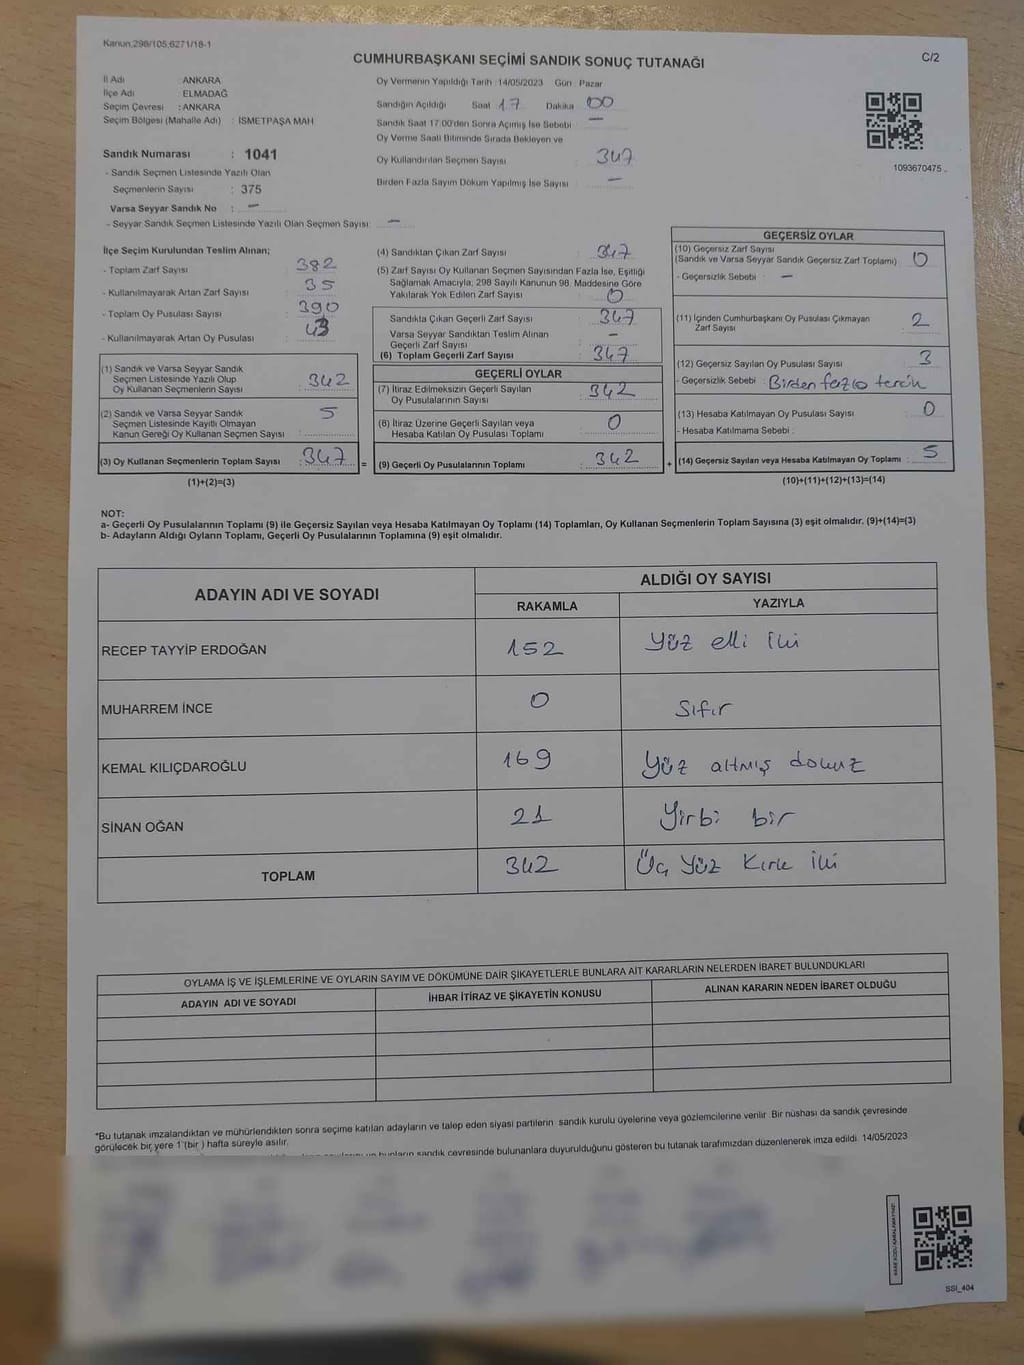 Kanun,298/105,6271/18-1
CUMHURBAŞKANI SEÇİMİ SANDIK SONUÇ TUTANAĞI
C/2
İl Adı : ANKARA
İlçe Adı : ELMADAĞ
Seçim Çevresi : ANKARA
Seçim Bölgesi (Mahalle Adı) : İSMETPAŞA MAH.
Sandık Numarası : 1041
- Sandık Seçmen Listesinde Yazılı Olan
Seçmenlerin Sayısı : 375
Varsa Seyyar Sandık No : -
- Seyyar Sandık Seçmen Listesinde Yazılı Olan Seçmen Sayısı: -
Oy Vermenin Yapıldığı Tarih :14/05/2023 Gün : Pazar
Sandığın Açıldığı Saat 17 Dakika 00
Sandık Saat 17:00'den Sonra Açımış İse Sebebi : -
Oy Verme Saati Bitiminde Sırada Bekleyen ve
Oy Kullandırılan Seçmen Sayısı : 347
Birden Fazla Sayım Döküm Yapılmış İse Sayısı : -
1093670475
İlçe Seçim Kurulundan Teslim Alınan;
- Toplam Zarf Sayısı : 382
- Kullanılmayarak Artan Zarf Sayısı : 35
- Toplam Oy Pusulası Sayısı : 390
- Kullanılmayarak Artan Oy Pusulası : 43
(1) Sandık ve Varsa Seyyar Sandık
Seçmen Listesinde Yazılı Olup
Oy Kullanan Seçmenlerin Sayısı : 342
(2) Sandık ve Varsa Seyyar Sandık
Seçmen Listesinde Kayıtlı Olmayan
Kanun Gereği Oy Kullanan Seçmen Sayısı : 5
(3) Oy Kullanan Seçmenlerin Toplam Sayısı : 347
(1)+(2)=(3)
(4) Sandıktan Çıkan Zarf Sayısı : 347
(5) Zarf Sayısı Oy Kullanan Seçmen Sayısından Fazla İse, Eşitliği
Sağlamak Amacıyla; 298 Sayılı Kanunun 98. Maddesine Göre
Yakılarak Yok Edilen Zarf Sayısı : 0
Sandıkta Çıkan Geçerli Zarf Sayısı : 347
Varsa Seyyar Sandıktan Teslim Alınan
Geçerli Zarf Sayısı : -
(6) Toplam Geçerli Zarf Sayısı : 347
GEÇERLİ OYLAR
(7) İtiraz Edilmeksizin Geçerli Sayılan
Oy Pusulalarının Sayısı : 342
(8) İtiraz Üzerine Geçerli Sayılan veya
Hesaba Katılan Oy Pusulası Toplamı : 0
= (9) Geçerli Oy Pusulalarının Toplamı : 342
GEÇERSİZ OYLAR
(10) Geçersiz Zarf Sayısı
(Sandık ve Varsa Seyyar Sandık Geçersiz Zarf Toplamı) : 0
- Geçersizlik Sebebi : -
(11) İçinden Cumhurbaşkanı Oy Pusulası Çıkmayan
Zarf Sayısı : 2
(12) Geçersiz Sayılan Oy Pusulası Sayısı : 3
- Geçersizlik Sebebi : Birden fazla tercih
(13) Hesaba Katılmayan Oy Pusulası Sayısı : 0
- Hesaba Katılmama Sebebi :
+ (14) Geçersiz Sayılan veya Hesaba Katılmayan Oy Toplamı : 5
(10)+(11)+(12)+(13)=(14)
NOT:
a- Geçerli Oy Pusulalarının Toplamı (9) ile Geçersiz Sayılan veya Hesaba Katılmayan Oy Toplamı (14) Toplamları, Oy Kullanan Seçmenlerin Toplam Sayısına (3) eşit olmalıdır. (9)+(14)=(3)
b- Adayların Aldığı Oyların Toplamı, Geçerli Oy Pusulalarının Toplamına (9) eşit olmalıdır.
ADAYIN ADI VE SOYADI
ALDIĞI OY SAYISI
RAKAMLA YAZIYLA
RECEP TAYYİP ERDOĞAN 152 Yüz elli iki
MUHARREM İNCE 0 Sıfır
KEMAL KILIÇDAROĞLU 169 Yüz altmış dokuz
SİNAN OĞAN 21 Yirbi bir
TOPLAM 342 Üç Yüz Kırk İki
OYLAMA İŞ VE İŞLEMLERİNE VE OYLARIN SAYIM VE DÖKÜMÜNE DAİR ŞİKAYETLERLE BUNLARA AİT KARARLARIN NELERDEN İBARET BULUNDUKLARI
ADAYIN ADI VE SOYADI İHBAR İTİRAZ VE ŞİKAYETİN KONUSU ALINAN KARARIN NEDEN İBARET OLDUĞU
*Bu tutanak imzalandıktan ve mühürlendikten sonra seçime katılan adayların ve talep eden siyasi partilerin sandık kurulu üyelerine veya gözlemcilerine verilir. Bir nüshası da sandık çevresinde
görülecek bir yere 1 (bir ) hafta süreyle asılır.
sandık çevresinde bulunanlara duyurulduğunu gösteren bu tutanak tarafımızdan düzenlenerek imza edildi. 14/05/2023
SSI_404